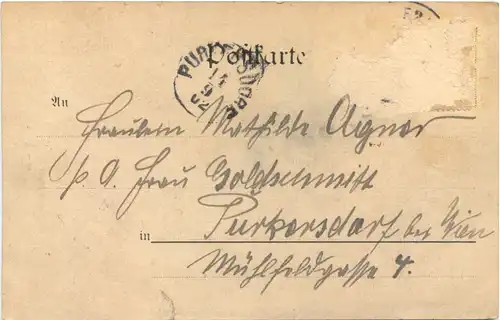 Postkarte
PURKERSDORF
14
9
02
An
Fräulein Mathilde Aigner
p. A. Frau Goldschmitt
in Purkersdorf bei Wien
Mühlfeldgasse 4.